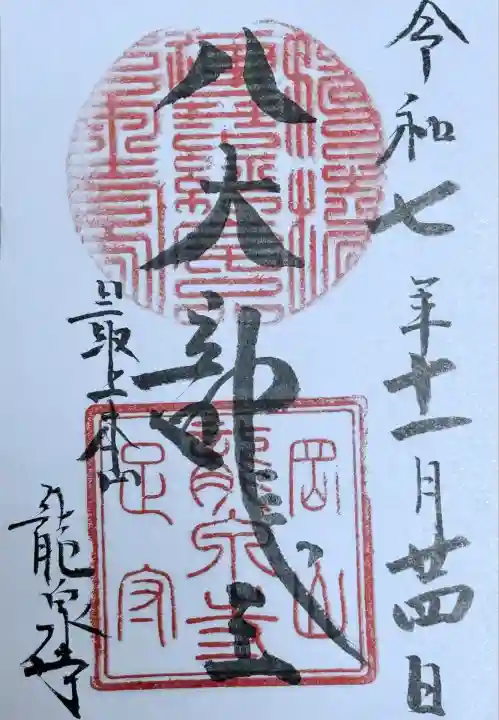 令和七年十一月廿四日
八大龍王
最上本山
龍泉寺
岡山
龍泉寺
足守